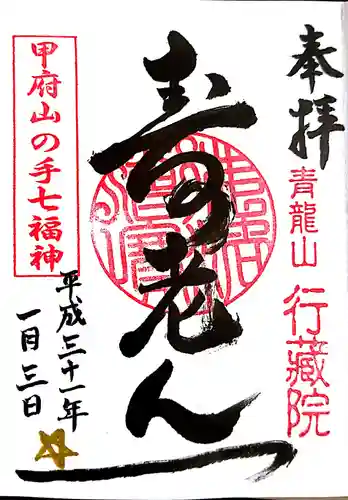 奉拝
青龍山
行藏院
寿老人
甲府山の手七福神
平成三十一年
一月三日